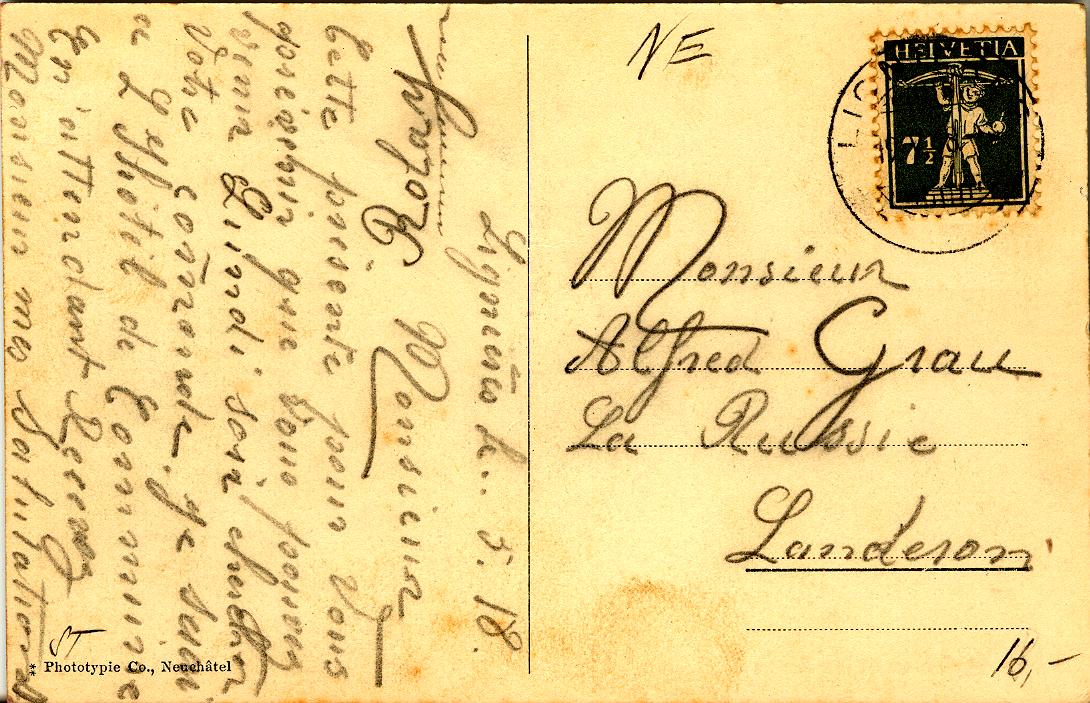 NE
HELVETIA
7½
Monsieur
Alfred Grau
La Russie
Landeron
16,-
Lignières le. 5. 18.
Monsieur
Cette présente pour vous
prévenir que vous pouvez
venir Lundi soir chercher
Votre commande. Je suis
a L'Hôtel de Commune
En attendant Recevez
Monsieur mes Salutations
Roland
ST
* Phototypie Co., Neuchâtel